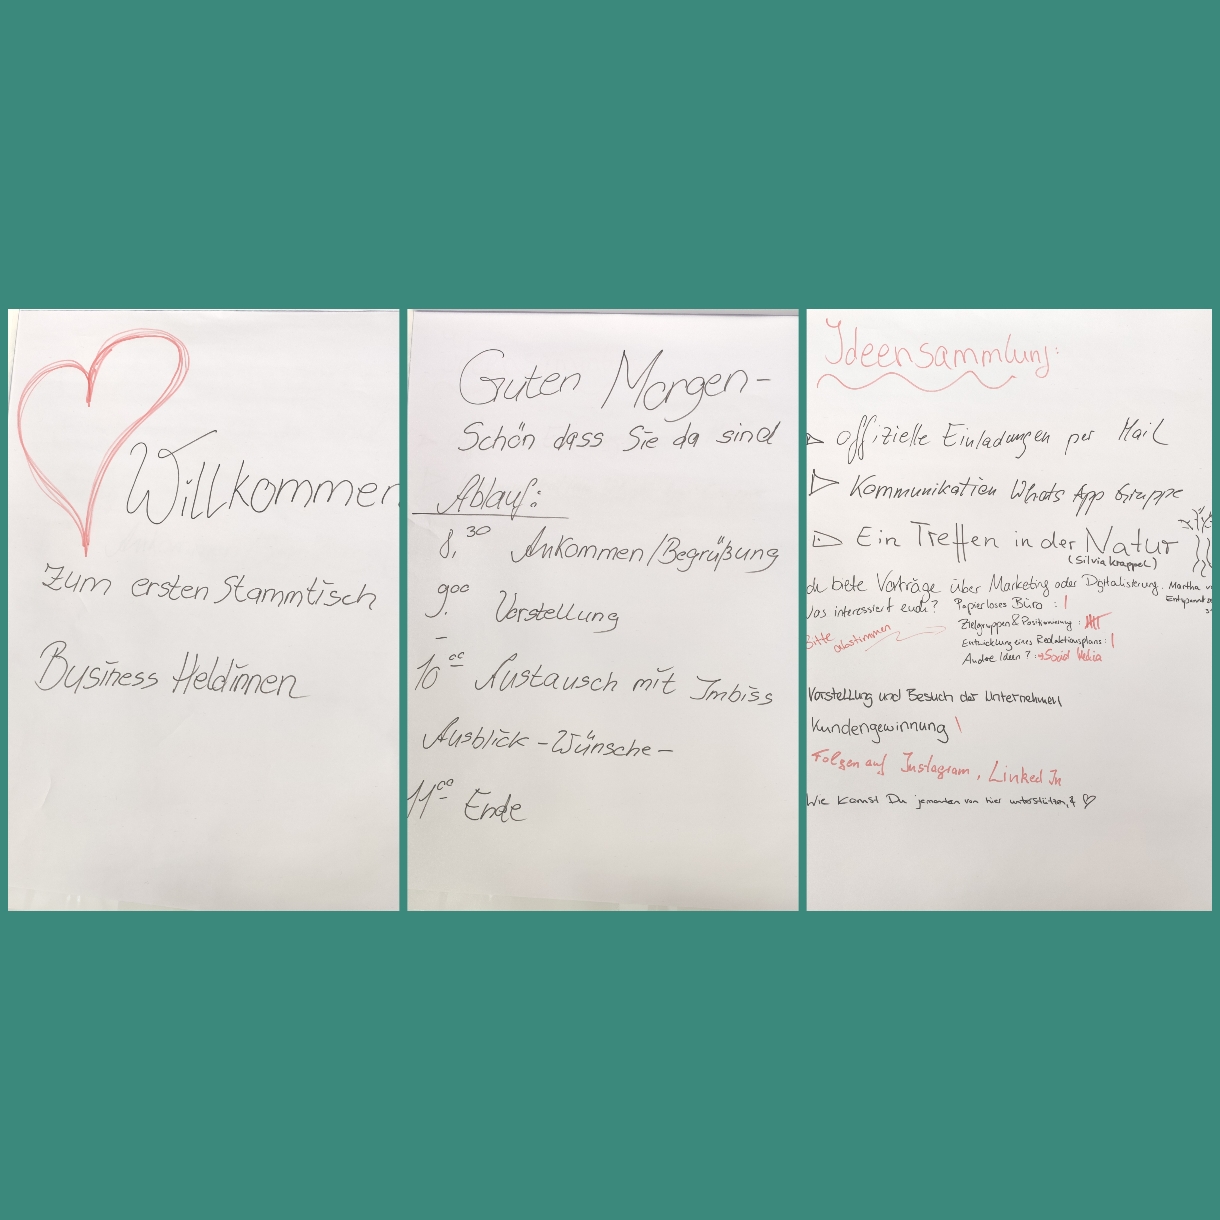 Willkommen
Zum ersten Stammtisch
Business Heldinnen
Guten Morgen –
Schön dass Sie da sind
Ablauf:
8.30 Ankommen/Begrüßung
9.00 Vorstellung
–
10.00 Austausch mit Imbiss
Ausblick – Wünsche –
11.00 Ende
Ideensammlung:
Offizielle Einladungen per Mail
Kommunikation Whats App Gruppe
Ein Treffen in der Natur
(Silvia Krappel)
biete Vorträge über Marketing oder Digitalisierung. Martha
interessiert euch? Papierloses Büro : |
Zielgruppen & Positionierung :
Bitte abstimmen
Entwicklung eines Redaktionsplans : |
Andere Ideen? : → Social Media
Vorstellung und Besuch der Unternehmen
Kundengewinnung \
Folgen auf Instagram, Linked In
Wie kannst Du jemanden von hier unterstützen? ♡